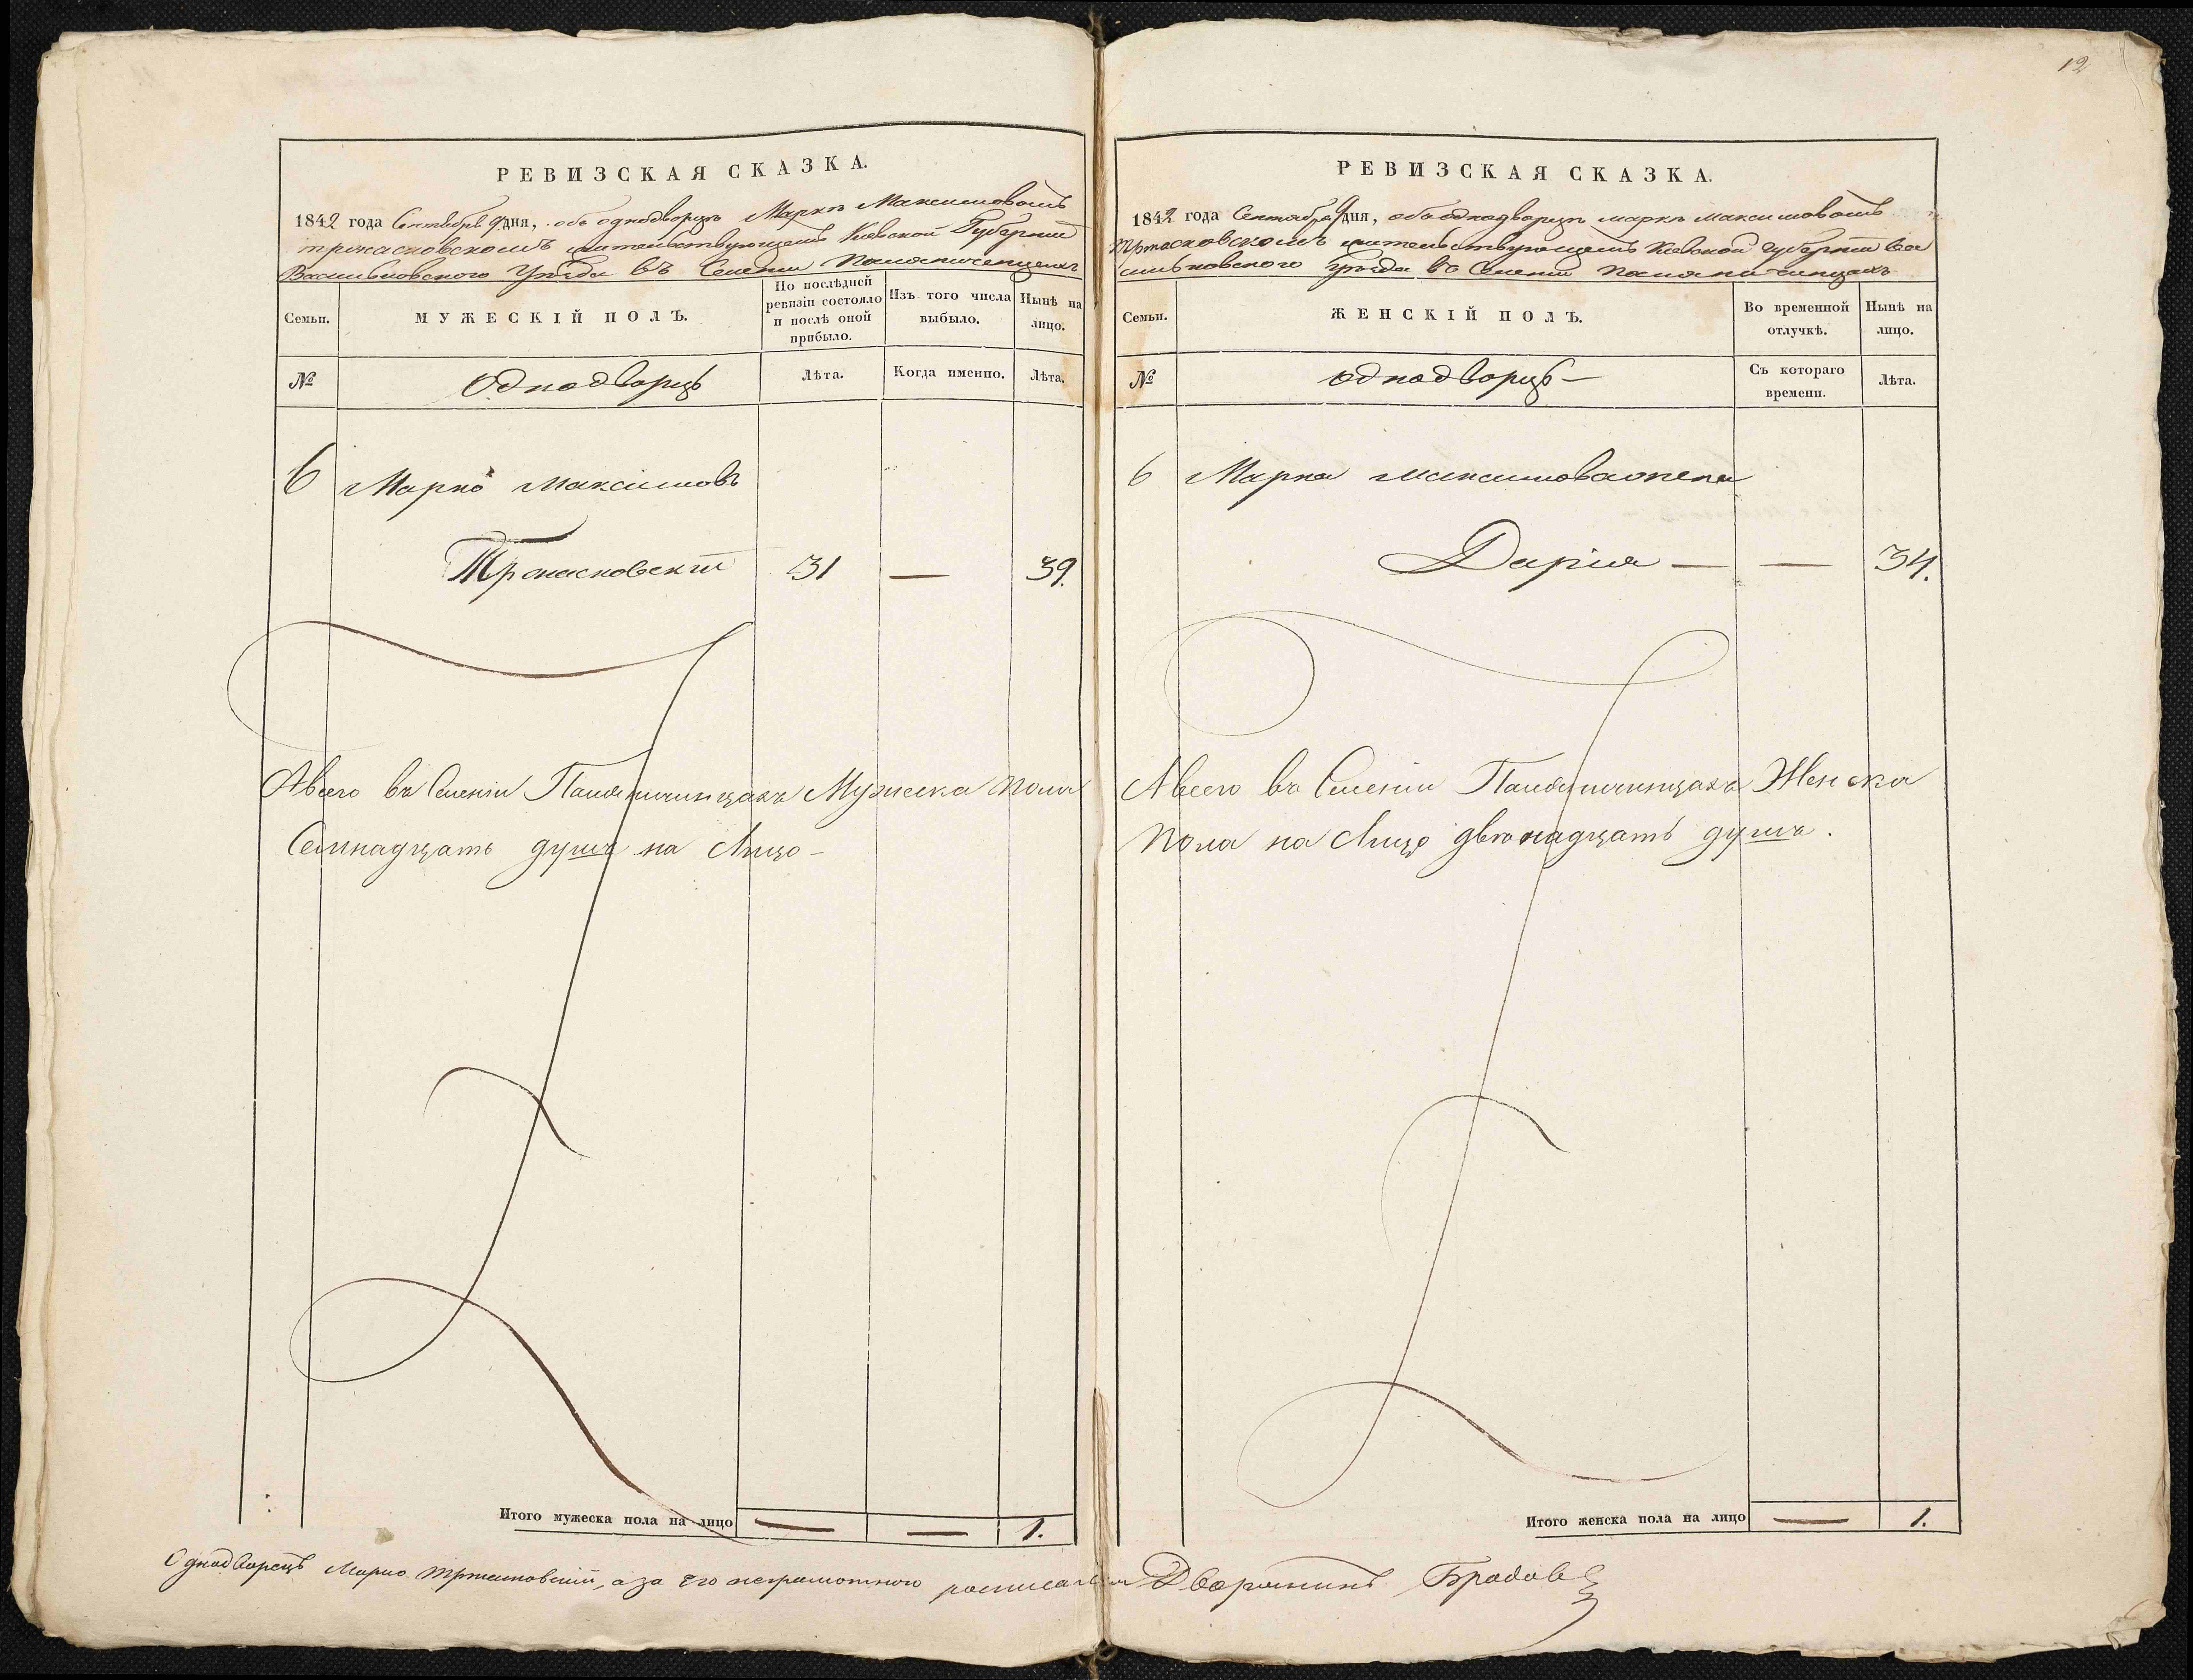 12
РЕВИЗСКАЯ СКАЗКА.
1842 года Сентября 9 дня, объ однодворцѣ Маркѣ Максимовомъ
жительствующемъ Киевской Губернии
Васильковского Уѣзда въ Селении
Семьи.
МУЖЕСКІЙ ПОЛЪ.
По послѣдней
ревизіи состояло
и послѣ оной
прибыло.
Изъ того числа
выбыло.
Нынѣ на
лицо.
№
Однодворцъ
Лѣта.
Когда именно.
Лѣта.
6 Марко Максимовъ
31 — 39.
Авсего въ Селеніи Мужеска пола
Семнадцать душъ на Лицо –
Итого мужеска пола на лицо — — 1.
Однодворецъ Марко а за его неграмотного росписался
РЕВИЗСКАЯ СКАЗКА.
1842 года Сентября 9 дня, объ однодворцѣ Маркѣ Максимовомъ
жительствующемъ Киевской Губернии Ва
сильковского Уѣзда въ Селении
Семьи.
ЖЕНСКІЙ ПОЛЪ.
Во временной
отлучкѣ.
Нынѣ на
лицо.
№
однодворцъ –
Съ котораго
времени.
Лѣта.
6 Марка Максимова жена
Дарія — — 34.
Авсего въ Селеніи Женска
пола на Лицо двѣнадцать душъ.
Итого женска пола на лицо — 1.
Дворянинъ